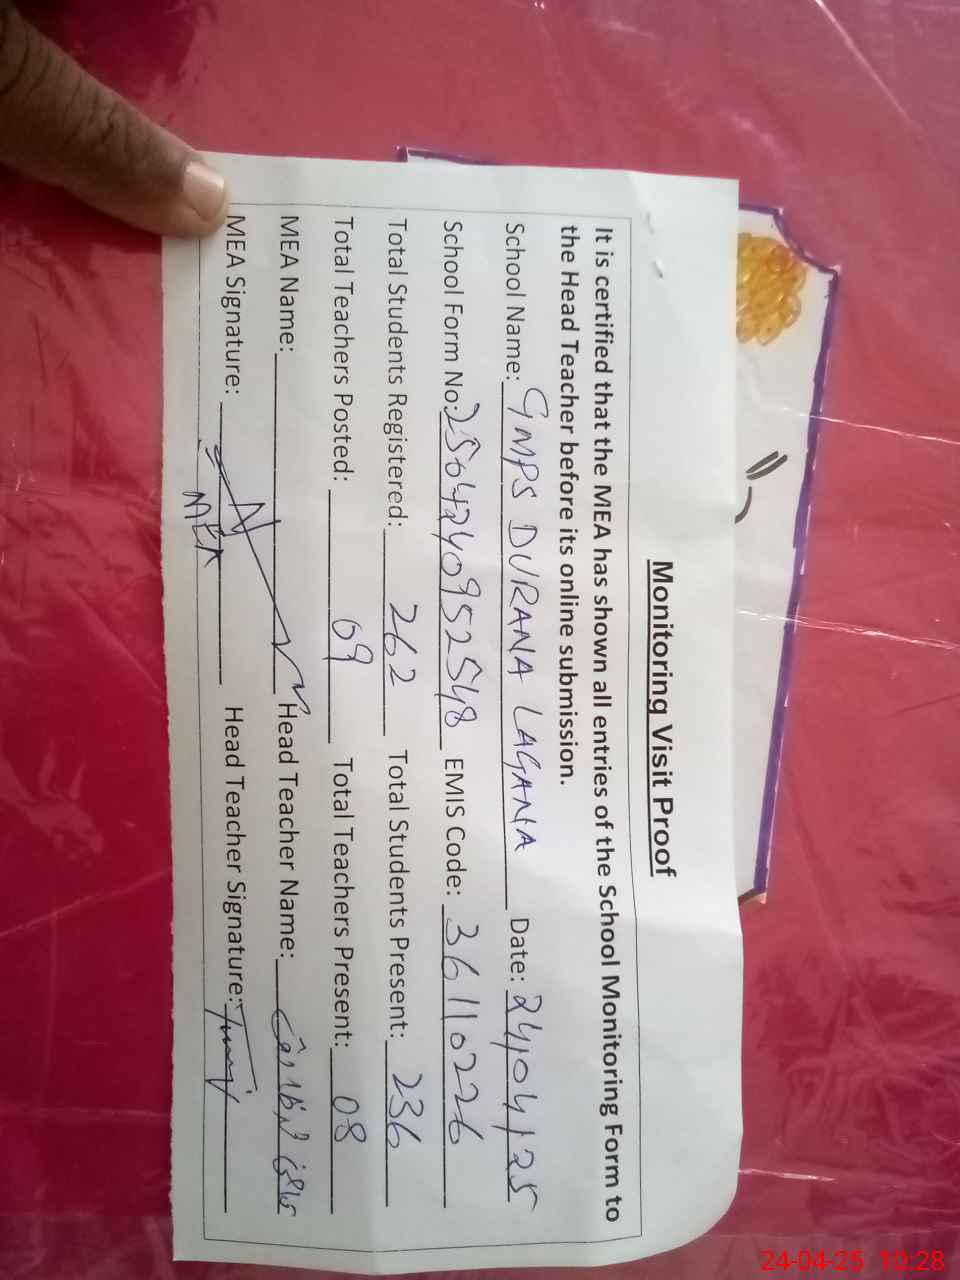 Monitoring Visit Proof
It is certified that the MEA has shown all entries of the School Monitoring Form to
the Head Teacher before its online submission.
School Name: GMPS DURANA LAGANA Date: 24/04/25
School Form No: 2504240952548 EMIS Code: 36110226
Total Students Registered: 262 Total Students Present: 236
Total Teachers Posted: 09 Total Teachers Present: 08
MEA Name: Head Teacher Name:
MEA Signature: Head Teacher Signature:
MEA
24-04-25 10:28